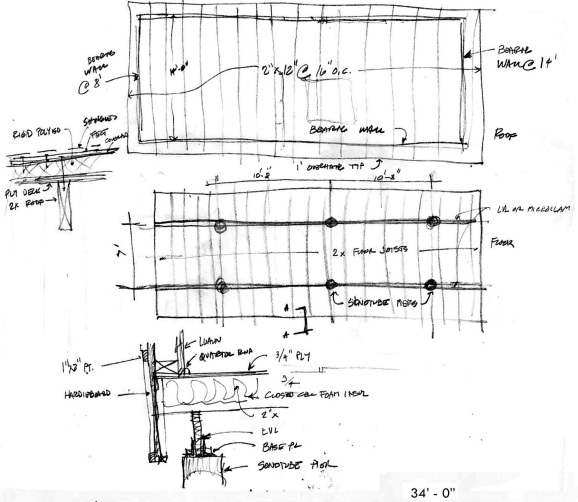 BEARING
WALL
@ 8'
14'-0"
2"x12" @ 16" O.C.
BEARING
WALL @ 14'
BEARING WALL
ROOF
1' OVERHANG TYP
RIGID POLYISO
SHINGLES
FELT
PLY DECK
2X ROOF
10'-8"
10'-8"
LVL OR MICROLAM
7'
2x FLOOR JOISTS
FLOOR
SONOTUBE PIERS
A
A
LUAUN
QUARTER RND
3/4" PLY
1"x2" PT.
3/4
HARDIEBOARD
CLOSED CELL FOAM INSUL
2"x
LVL
BASE PL
SONOTUBE PIER
34' - 0"